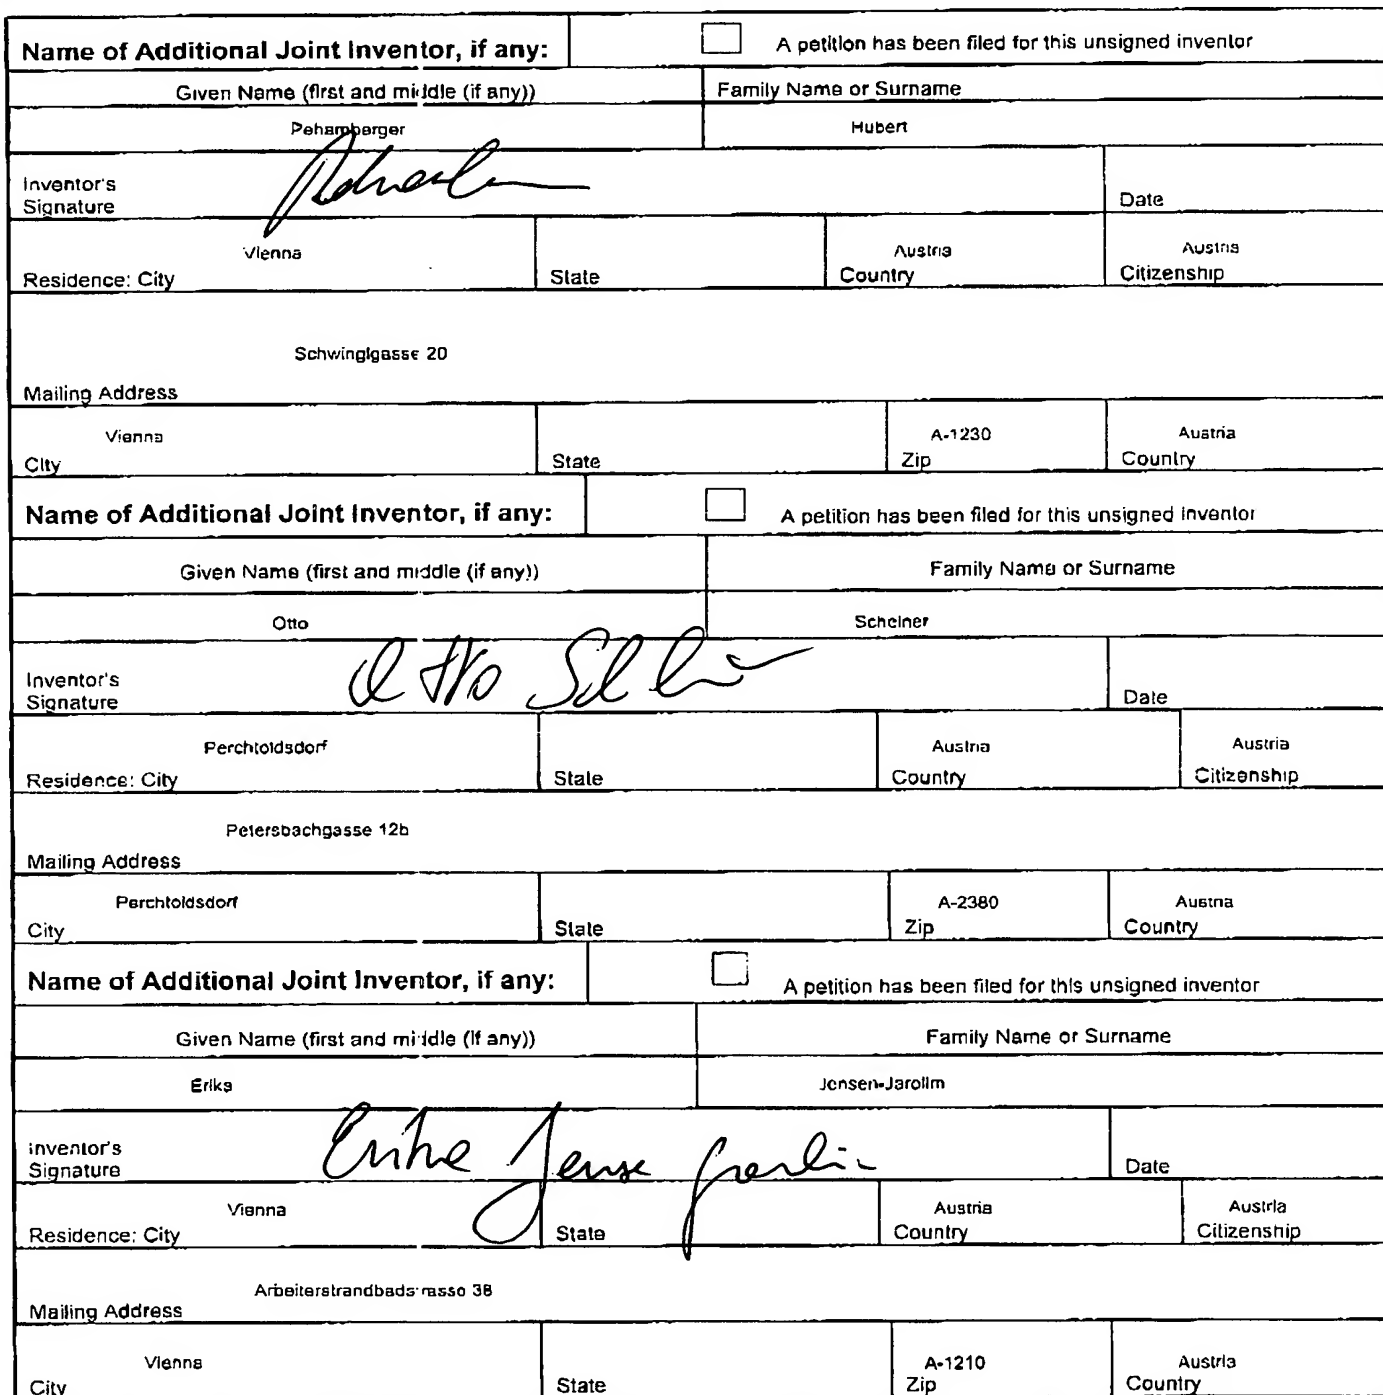 Name of Additional Joint Inventor, if any: A petition has been filed for this unsigned inventor
Given Name (first and middle (if any)) Family Name or Surname
Pehamberger Hubert
Inventor's
Signature Date
Vienna Austria Austria
Residence: City State Country Citizenship
Schwinglgasse 20
Mailing Address
Vienna A-1230 Austria
City State Zip Country
Name of Additional Joint Inventor, if any: A petition has been filed for this unsigned inventor
Given Name (first and middle (if any)) Family Name or Surname
Otto Scheiner
Otto
Inventor's
Signature Date
Perchtoldsdorf Austria Austria
Residence: City State Country Citizenship
Petersbachgasse 12b
Mailing Address
Perchtoldsdorf A-2380 Austria
City State Zip Country
Name of Additional Joint Inventor, if any: A petition has been filed for this unsigned inventor
Given Name (first and middle (if any)) Family Name or Surname
Erika Jensen-Jarolim
Inventor's
Signature Date
Vienna Austria Austria
Residence: City State Country Citizenship
Arbeiterstrandbadstrasse 38
Mailing Address
Vienna A-1210 Austria
City State Zip Country